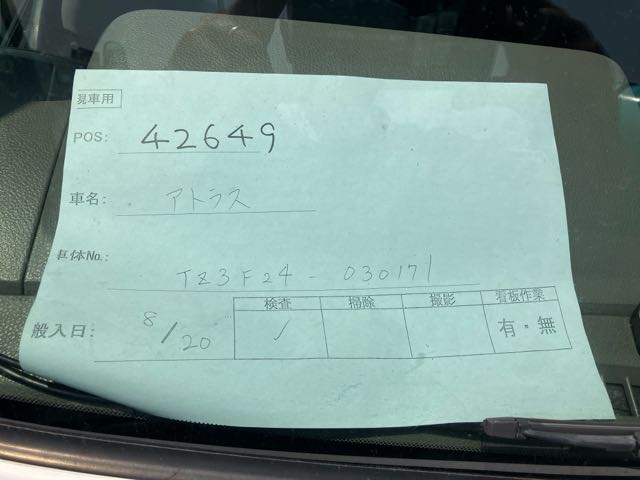 現車用
POS: 42649
車名: アトラス
車体No.: TZ3F24-030171
搬入日: 8/20
検査 掃除 撮影 看板作業
✓ 有・無